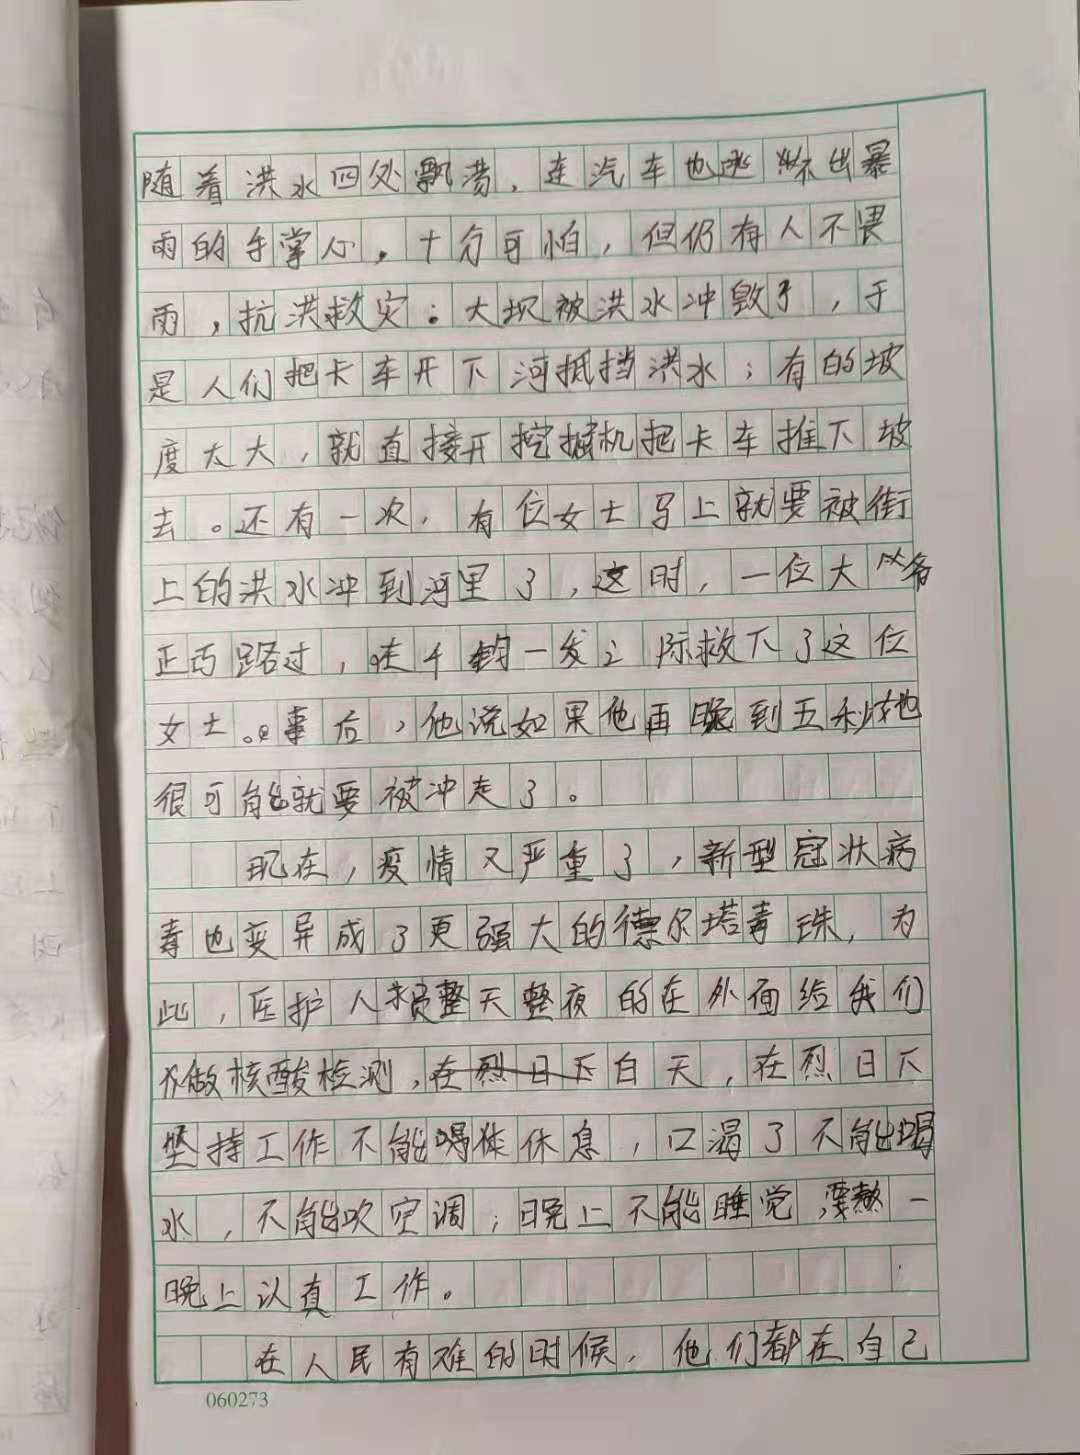 随着洪水四处飘荡，连汽车也逃 出暴
雨的手掌心，十分可怕，但仍有人不畏
雨，抗洪救灾：大坝被洪水冲毁了，于
是人们把卡车开下河抵挡洪水；有的坡
度太大，就直接开挖掘机把卡车推下坡
去。还有一次，有位女士马上就要被街
上的洪水冲到河里了，这时，一位大爷
正巧路过，在千钧一发之际救下了这位
女士。事后，他说如果他再晚到五秒她
很可能就要被冲走了。
现在，疫情又严重了，新型冠状病
毒也变异成了更强大的德尔塔毒铢，为
此，医护人员整天整夜的在外面给我们
做核酸检测，在烈日下白天，在烈日下
坚持工作不能休息，口渴了不能喝
水，不能吹空调；晚上不能睡觉，要熬一
晚上认真工作。
在人民有难的时候，他们都在自己
060273